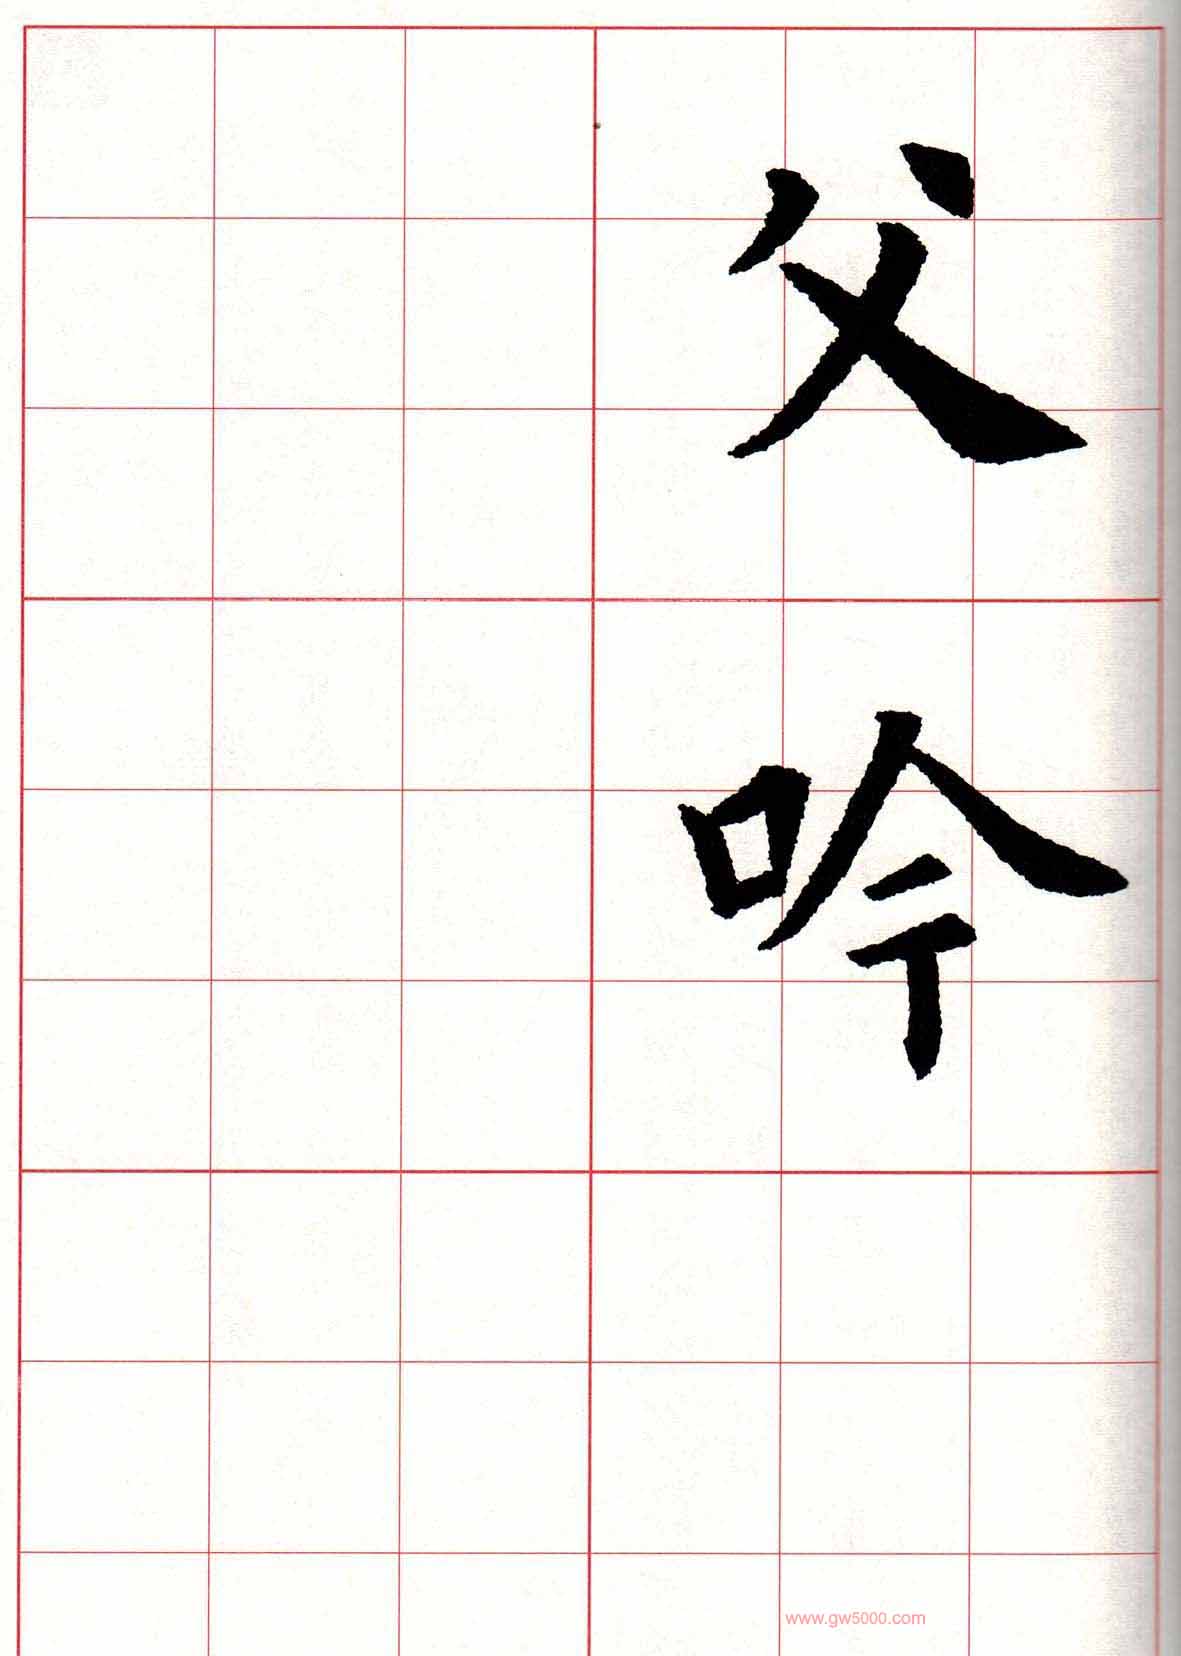 父吟
www.gw5000.com